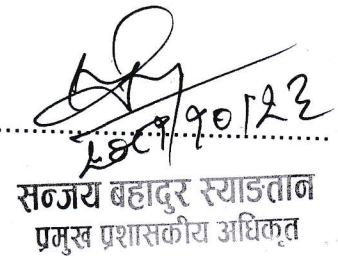 २०८१/१०/२३
सन्जय बहादुर स्याङतान
प्रमुख प्रशासकीय अधिकृत